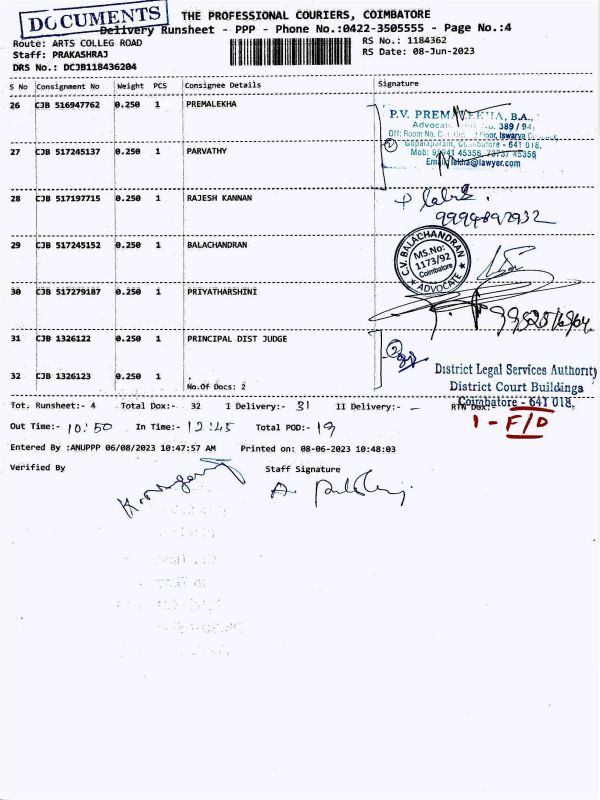 DOCUMENTS
THE PROFESSIONAL COURIERS, COIMBATORE
Delivery Runsheet - PPP - Phone No.:0422-3505555 - Page No.:4
Route: ARTS COLLEG ROAD
RS No.: 1184362
Staff: PRAKASHRAJ
RS Date: 08-Jun-2023
DRS No.: DCJB118436204
S No Consignment No Weight PCS Consignee Details Signature
26 CJB 516947762 0.250 1 PREMALEKHA
P.V. PREMALEKHA, B.A.,
389 / 94,
Off: Room No.
Floor, Iswarya
Gopalapuram, Coimbatore - 641 018.
27 CJB 517245137 0.250 1 PARVATHY
2
Mob: 45356, 73737 45356
Email: lekha@lawyer.com
28 CJB 517197715 0.250 1 RAJESH KANNAN
29 CJB 517245152 0.250 1 BALACHANDRAN
C.V. BALACHANDRAN
MS.No:
1173/92
Coimbatore
★ ADVOCATE ★
30 CJB 517279187 0.250 1 PRIYATHARSHINI
31 CJB 1326122 0.250 1 PRINCIPAL DIST JUDGE
2
32 CJB 1326123 0.250 1
No.Of Docs: 2
District Legal Services Authority
District Court Buildings
Coimbatore - 641 018.
Tot. Runsheet:- 4 Total Dox:- 32 I Delivery:- 31 II Delivery:- - RTN Dox:-
1 - F/D
Out Time:- 10:50 In Time:- 12:45 Total POD:- 19
Entered By :ANUPPP 06/08/2023 10:47:57 AM Printed on: 08-06-2023 10:48:03
Verified By Staff Signature